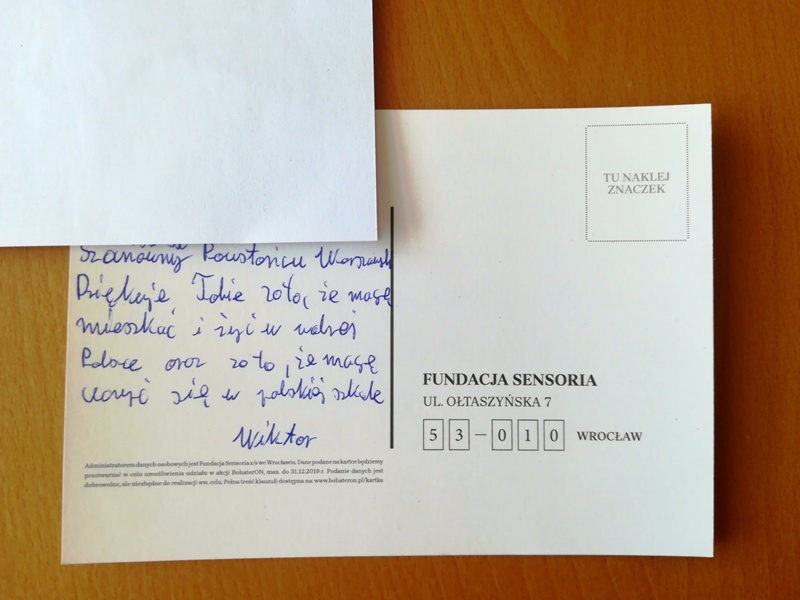 Szanowny Powstańcu Warszawski
Dziękuje Tobie za to, że mogę
mieszkać i żyć w wolnej
Polsce oraz za to, że mogę
uczyć się w polskiej szkole
Wiktor
Administratorem danych osobowych jest Fundacja Sensoria z/s we Wrocławiu. Dane podane na kartce będziemy
przetwarzać w celu umożliwienia udziału w akcji BohaterON, max. do 31.12.2019 r. Podanie danych jest
dobrowolne, ale niezbędne do realizacji ww. celu. Pełna treść klauzuli dostępna na: www.bohateron.pl/kartka
TU NAKLEJ
ZNACZEK
FUNDACJA SENSORIA
UL. OŁTASZYŃSKA 7
53-010 WROCŁAW